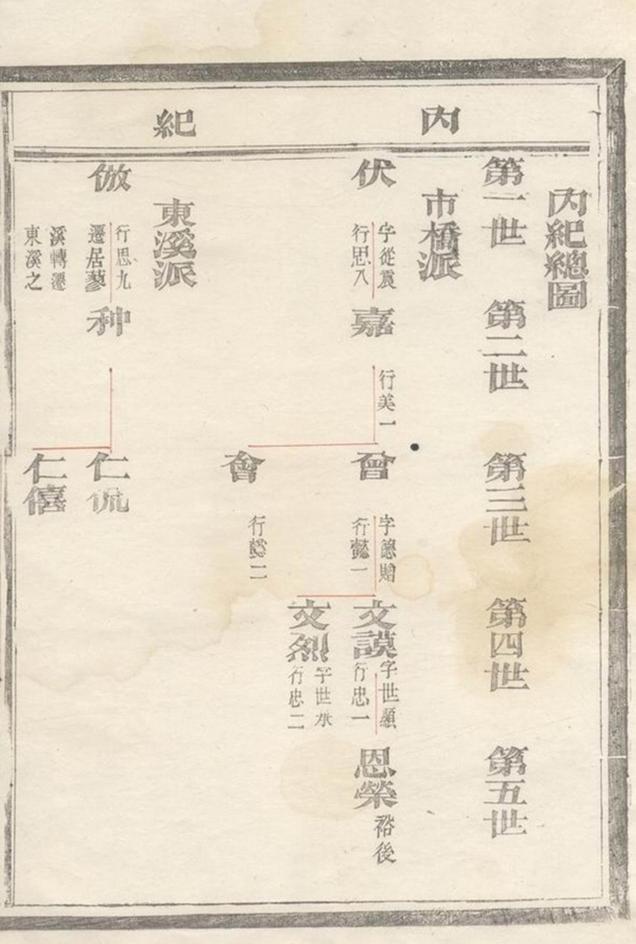 內紀
內紀總圖
第一世
第二世
第三世
第四世
第五世
市橋派
伏
字從震
行思八
嘉
行美一
曾
字德
行懿一
文謨
字世顯
行忠一
恩榮
裕後
文烈
字世承
行忠二
會
行懿二
東溪派
倣
行思九
遷居蓼
溪轉遷
東溪之
种
仁侃
仁僖